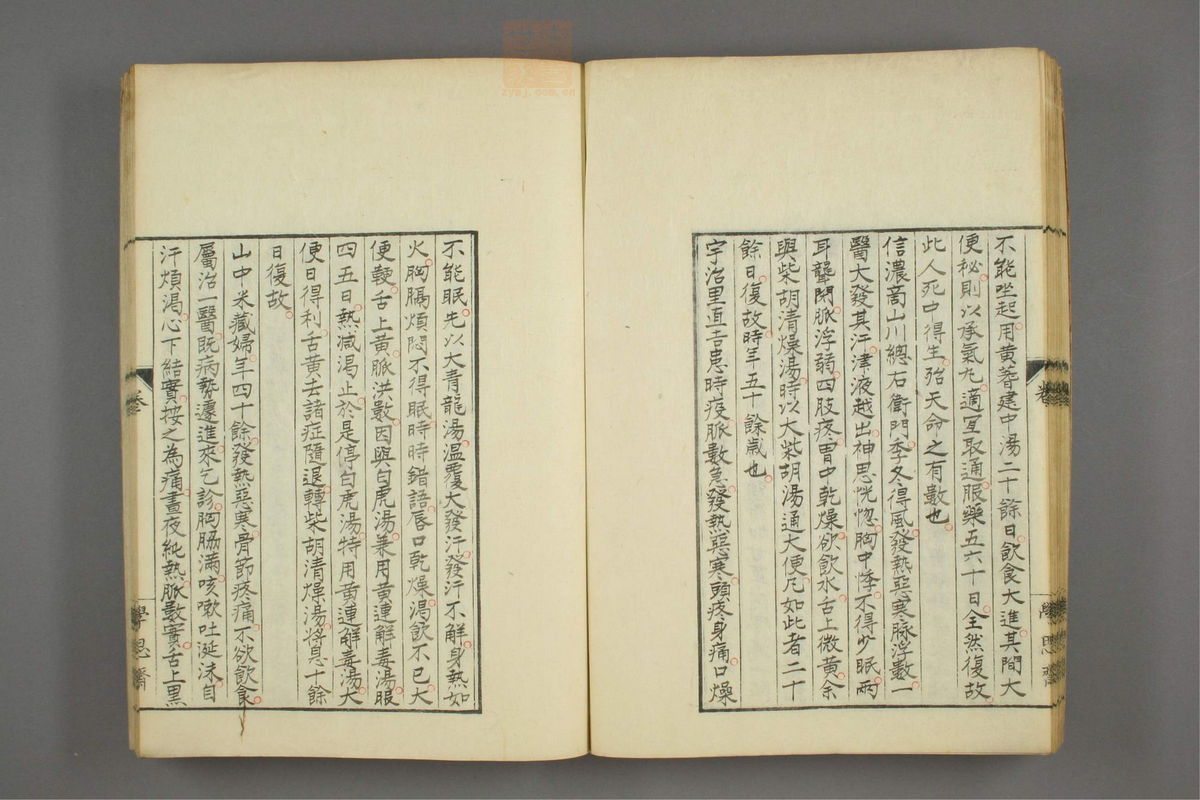 不能坐起用黄蓍建中湯二十餘日飲食大進其間大
便秘則以承氣丸適宜取通服藥五六十日全然復故
此人死中得生殆天命之有數也
信濃高山川總右衛門季冬得風發熱惡寒脉浮數一
醫大發其汗津液越出神思恍惚胸中悸不得少眠兩
耳聾閉脈浮弱四肢疼胃中乾燥欲飲水舌上微黄余
與柴胡清燥湯時以大柴胡湯通大便凡如此者二十
餘日復故時年五十餘歲也
宇治里直吉患時疫脈數急發熱惡寒頭疼身痛口燥
不能眠先以大青龍湯温覆大發汗發汗不解身熱如
火胸膈煩悶不得眠時時錯語唇口乾燥渴飲不已大
便鞕舌上黄脈洪數因與白虎湯兼用黄連解毒湯服
四五日熱减渴止於是停白虎湯特用黄連解毒湯大
便日得利舌黄去諸症隨退轉柴胡清燥湯將息十餘
日復故
山中米藏婦年四十餘發熱惡寒骨節疼痛不欲飲食
屬治一醫既病勢遽進來乞診胸脇滿咳嗽吐涎沫自
汗煩渴心下結實按之為痛晝夜純熱脈數實舌上黒
卷
學思齋
學思齋
zyej.com.cn